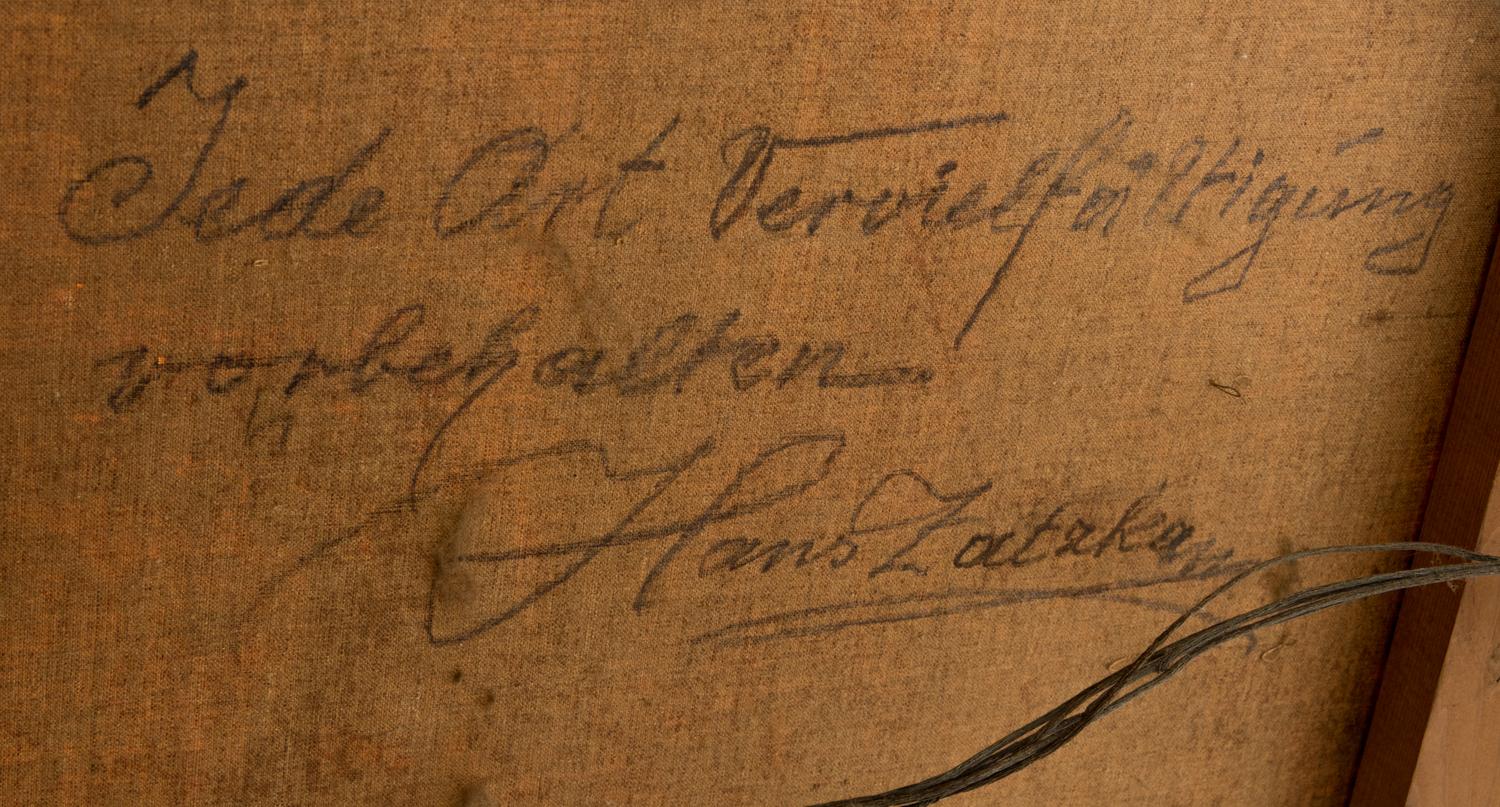 Jede Art Vervielfältigung
vorbehalten.
Hans Zatzka